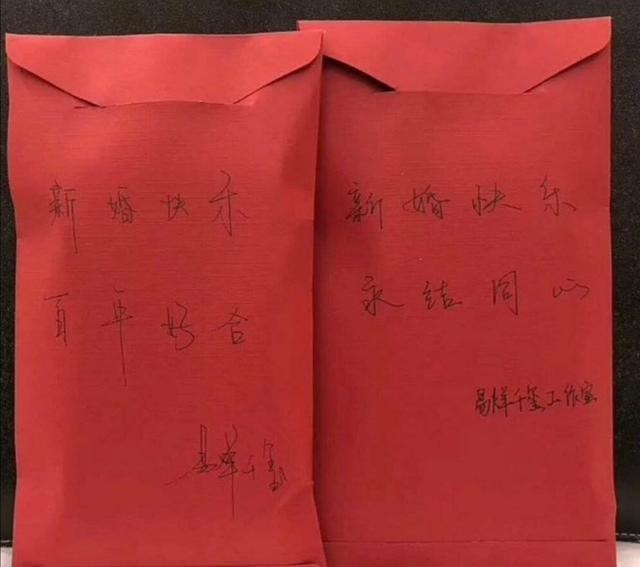 新婚快乐
百年好合
易烊千玺
新婚快乐
永结同心
易烊千玺工作室